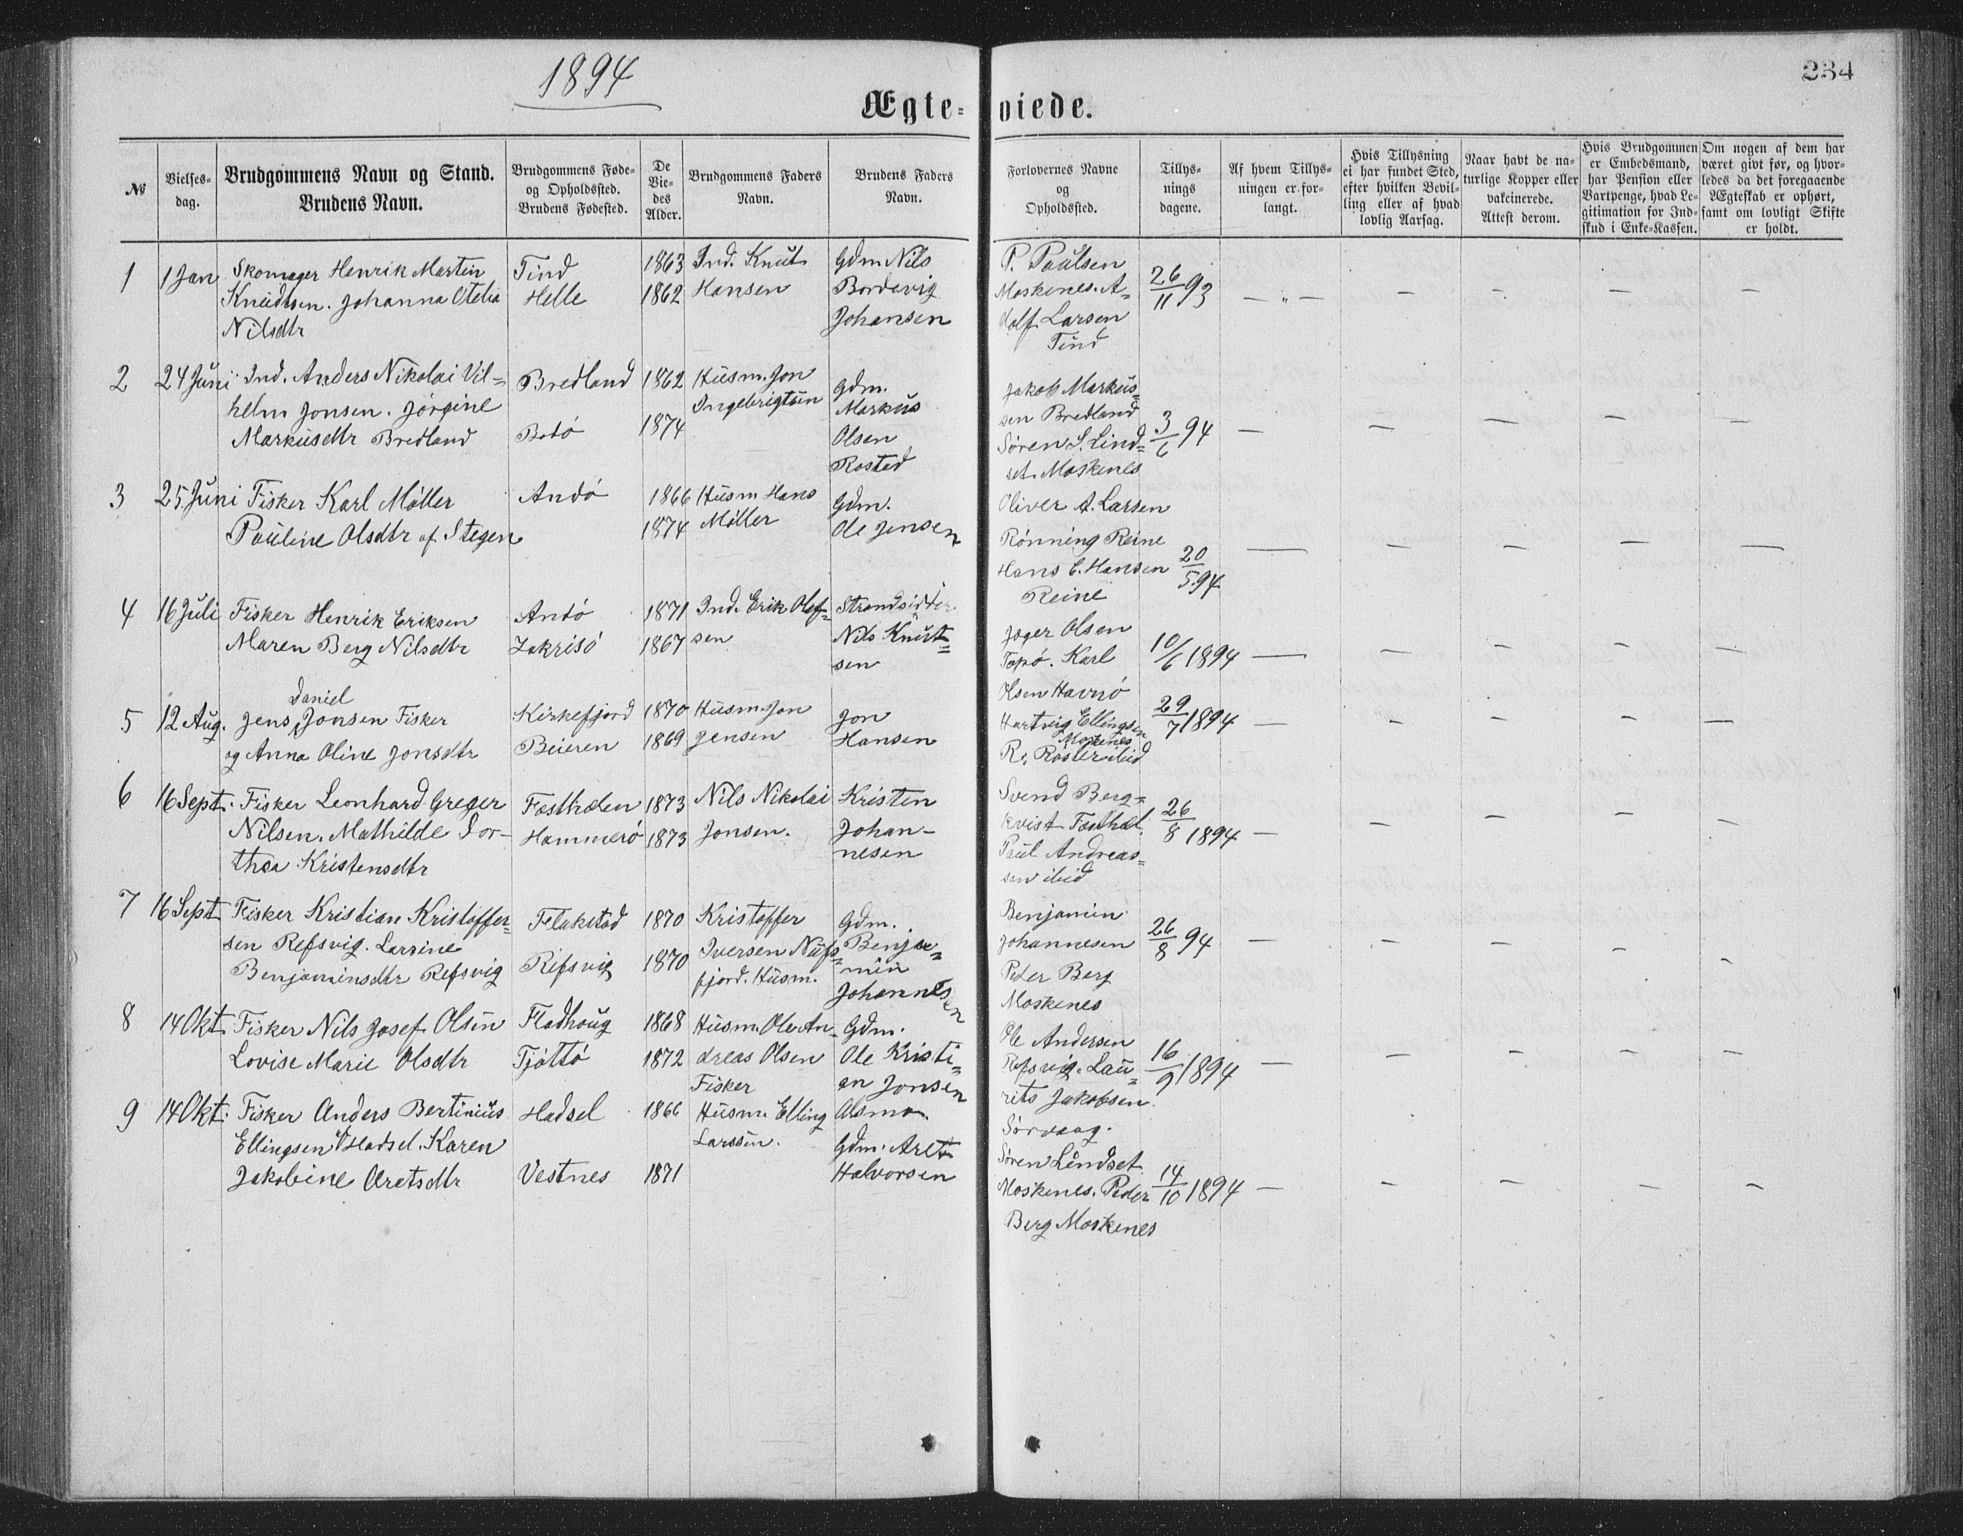 1894
234
Ægte-viede.
№
Vielses-dag.
Brudgommens Navn og Stand.
Brudens Navn.
Brudgommens Føde-
og Opholdssted.
Brudens Fødested.
De
Vie-
des
Alder.
Brudgommens Faders
Navn.
Brudens Faders
Navn.
Forlovernes Navne
og
Opholdssted.
Tillys-
nings
dagene.
Af hvem Tillys-
ningen er for-
langt.
Hvis Tillysning
ei har fundet Sted,
efter hvilken Bevil-
ling eller af hvad
lovlig Aarsag.
Naar havt de na-
turlige Kopper eller
vakcinerede.
Attest derom.
Hvis Brudgommen
er Embedsmand,
har Pension eller
Vartpenge, hvad Le-
gitimation for Ind-
skud i Enke-Kassen.
Om nogen af dem har
været givt før, og hvor-
ledes da det foregaaende
Ægteskab er ophørt,
samt om lovligt Skifte
er holdt.
1
1 Jan
Skomager Henrik Martin
Knudtsen. Johanna Otelia
Nilsdtr
Tind
Helle
1863
1862
Ind. Knut
Hansen
Gdm Nils
Bordevig
Johansen
P. Paulsen
Moskenes. A-
dolf Larsen
Tind
26/11 93
— " —
2
24 Juni
Ind. Anders Nikolai Vil=
helm Jonsen. Jørgine
Markusdtr Bredland
Bredland
Bodø
1862
1874
Husm. Jon
Ingebrigtsen
Gdm.
Markus
Olsen
Rosted
Jakob Markus=
sen Bredland
Søren S. Lind=
set. Moskenes
3/6 94
3
25. Juni
Fisker Karl Møller
Pauline Olsdtr af Stegen
Andø
1866
1874
Husm Hans
Møller
Gdm.
Ole Jensen
Oliver A. Larsen
Rønning Reine
Hans C. Hansen
Reine
20/5.94
4
16 Juli
Fisker Henrik Eriksen
Maren Berg Nilsdtr
Andø
Zakrisø
1871
1867
Ind. Erik Olef=
sen
Strandsidder
Nils Knut=
sen
Jæger Olsen
Topø. Karl
Olsen Havnø
10/6 1894
5
12 Aug.
Daniel
Jens Jonsen Fisker
og Anna Oline Jonsdtr
Kirkefjord
Beieren
1870
1869
Husm Jon
Jensen
Jon
Hansen
Hartvig Ellingsen
Moskenes
R. Roster ibid
29/7 1894
6
16 Sept.
Fisker Leonhard Greger
Nilsen. Mathilde Dor-
thea Kristensdtr
Fæsthælen
Hammerø
1873
1873
Nils Nikolai
Jonsen.
Kristen
Johan-
nesen
Svend Berg=
kvist Fæsthæl.
Paul Andreas=
sen ibid
26/8 1894
7
16 Sept.
Fisker Kristian Kristoffer=
sen Refsvig. Larsine
Benjaminsdtr Refsvig
Flakstad
Refsvig
1870
1870
Kristoffer
Iversen Nufs=
fjord. Husm.
Gdm.
Benja=
min
Johannesen
Benjamin
Johannesen
Peder Berg
Moskenes
26/8 94
8
14 Okt.
Fisker Nils Josef Olsen
Lovise Marie Olsdtr
Fladhoug
Tjøttø
1868
1872
Husm. Ole An=
dreas Olsen
Fisker
Gdm.
Ole Kristi=
an Jonsen
Ole Andersen
Refsvig. Lau=
rits Jakobsen.
Sørvaag.
16/9 1894
9
14 Okt.
Fisker Anders Bertinius
Ellingsen af Hadsel. Karen
Jakobine Aretsdtr
Hadsel
Vestnes
1866
1871
Husm. Elling
Larssen.
Gdm. Aret
Halvorsen
Søren Lindset
Moskenes. Peder
Berg Moskenes
14/10 1894